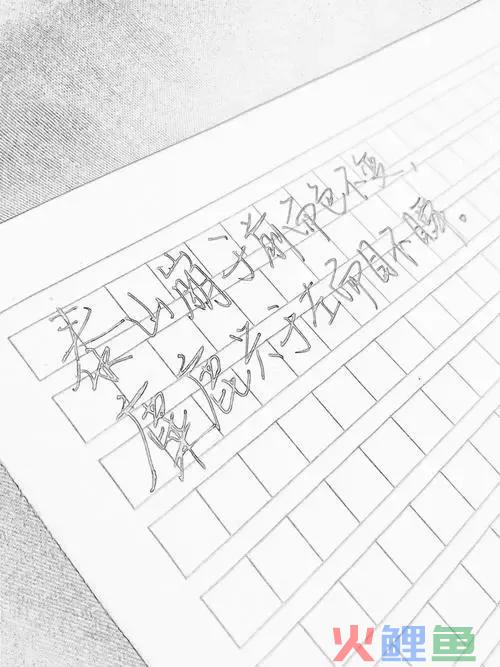 泰山崩于前而色不变，
麋鹿兴于左而目不瞬。
火鲤鱼